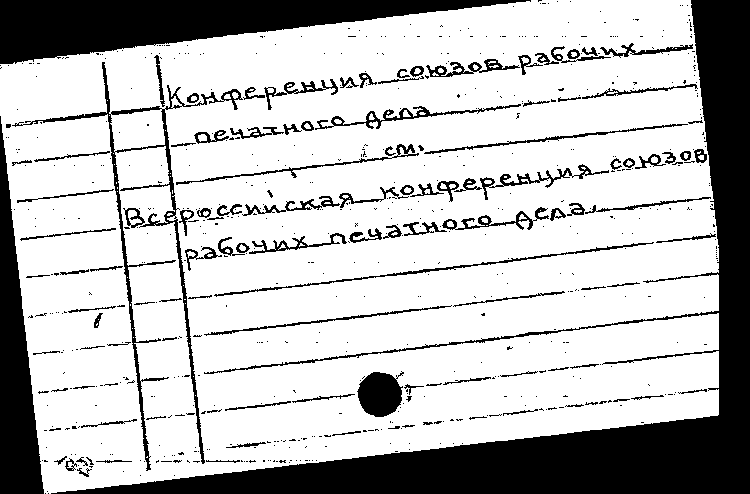 Конференция союзов рабочих
печатного дела
см.
Всероссийская конференция союзов
рабочих печатного дела.